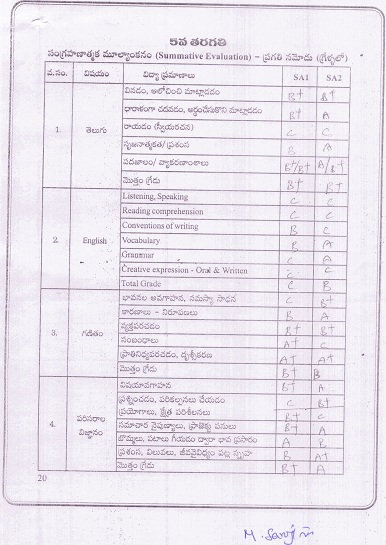 5వ తరగతి
సంగ్రహణాత్మక మూల్యాంకనం (Summative Evaluation) – ప్రగతి నమోదు (గ్రేడ్లలో)
వ.సం. విషయం విద్యా ప్రమాణాలు SA1 SA2
1. తెలుగు
వినడం, ఆలోచించి మాట్లాడడం B+ B+
ధారాళంగా చదవడం, అర్థంచేసుకొని మాట్లాడడం B+ A
రాయడం (స్వీయరచన) C C
సృజనాత్మకత/ ప్రశంస B A
పదజాలం/ వ్యాకరణాంశాలు B+/B+ A/B+
మొత్తం గ్రేడు B+ B+
2. English
Listening, Speaking C C
Reading comprehension C C
Conventions of writing B C
Vocabulary B A
Grammar C A
Creative expression - Oral & Written C C
Total Grade C B
3. గణితం
భావనల అవగాహన, సమస్యా సాధన C B+
కారణాలు - నిరూపణలు B A
వ్యక్తపరచడం B+ B+
సంబంధాలు A+ C
ప్రాతినిధ్యపరచడం, దృశ్యీకరణ A+ A+
మొత్తం గ్రేడు B+ B
4. పరిసరాల విజ్ఞానం
విషయావగాహన B+ A
ప్రశ్నించడం, పరికల్పనలు చేయడం C B+
ప్రయోగాలు, క్షేత్ర పరిశీలనలు B+ C
సమాచార నైపుణ్యాలు, ప్రాజెక్టు పనులు B+ A
బొమ్మలు, పటాలు గీయడం ద్వారా భావ ప్రసారం A B
ప్రశంస, విలువలు, జీవవైవిధ్యం పట్ల స్పృహ B A+
మొత్తం గ్రేడు B+ A
20